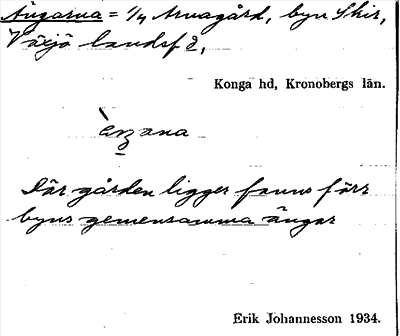 Ängarna = 1/4 Arnagård, byn Skir,
Växjö landsf 2,
Konga hd, Kronobergs län.
Där gården ligger fanns förr
byns gemensamma ängar
Erik Johannesson 1934.